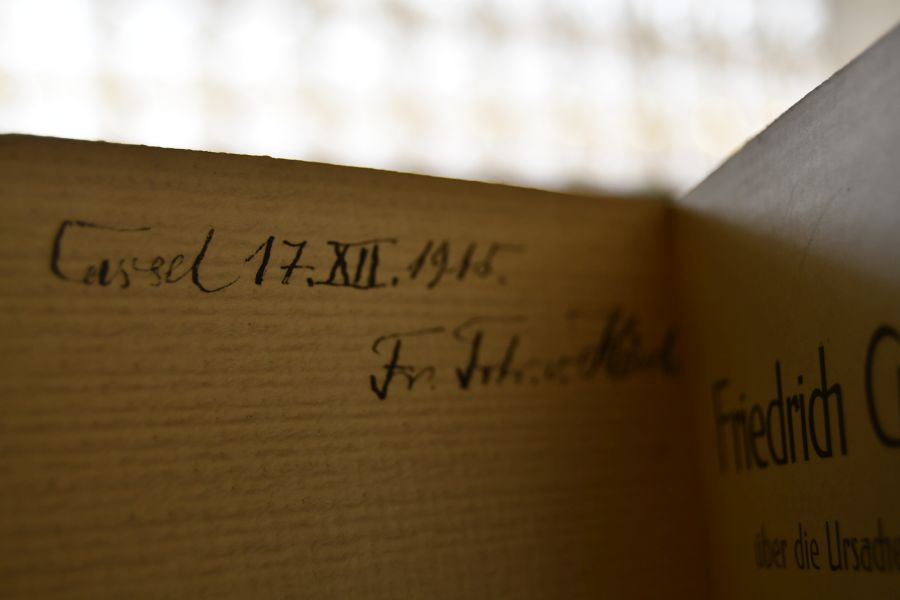 Cassel 17. XII. 1915.
Fr. Frhr. v.
Friedrich
über die Ursache